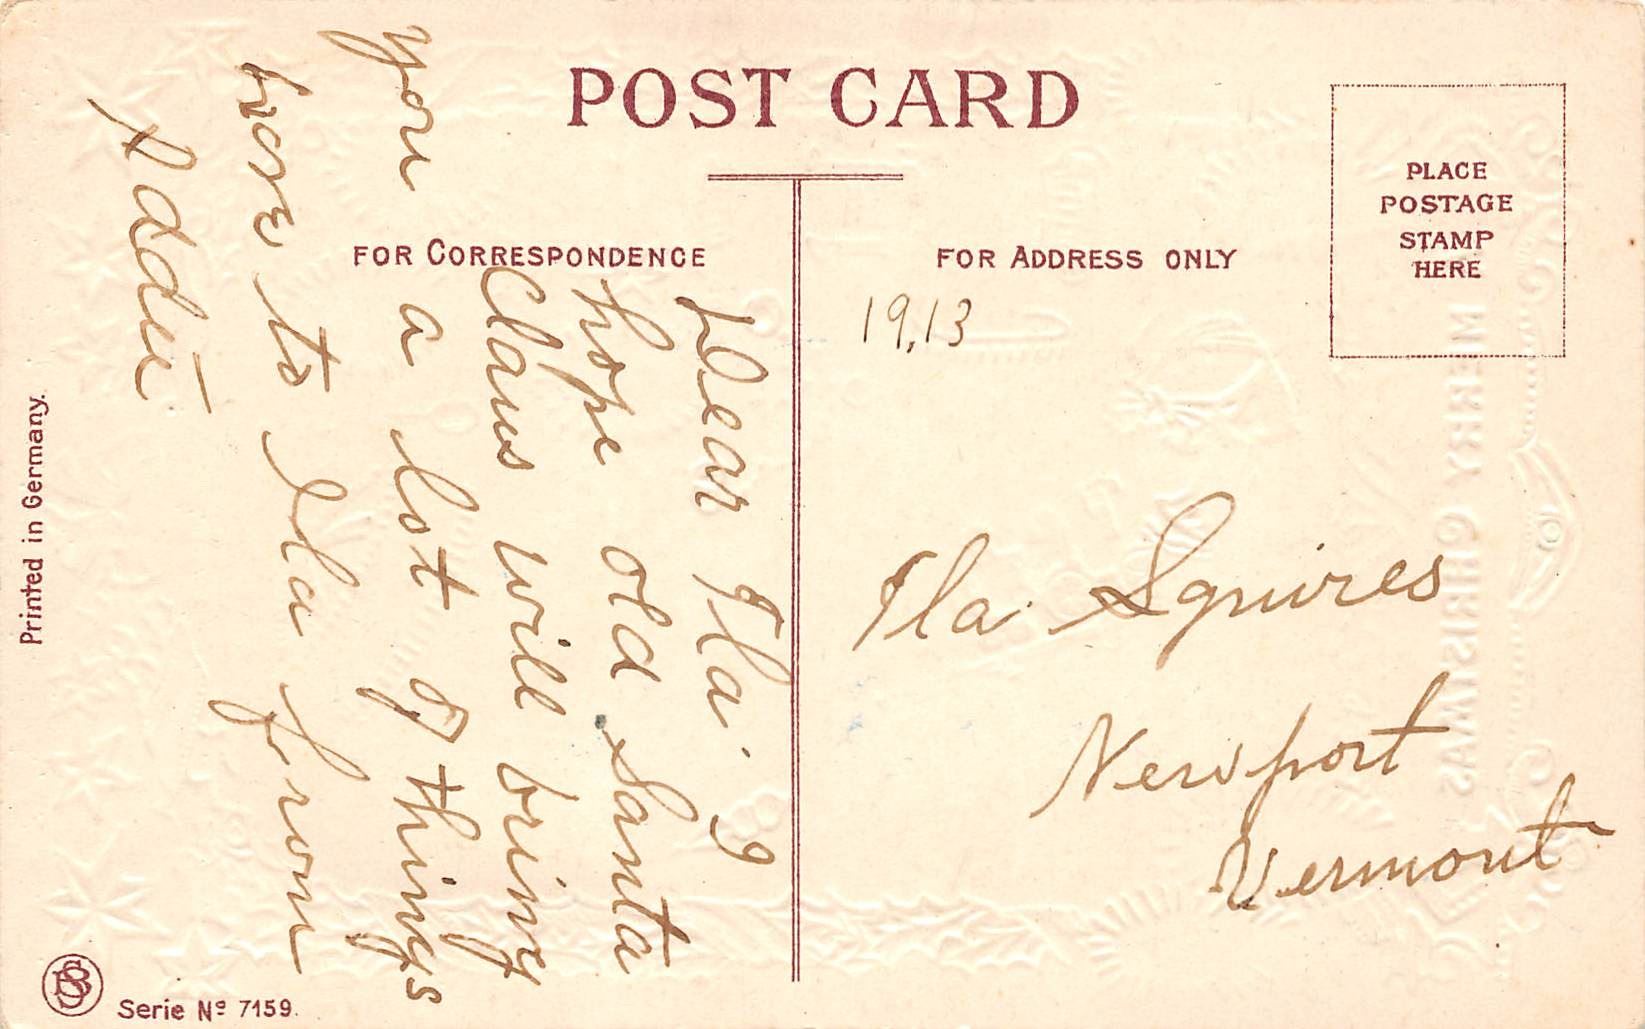 POST CARD
FOR CORRESPONDENCE
FOR ADDRESS ONLY
PLACE
POSTAGE
STAMP
HERE
19,13
Dear Ila I
hope old Santa
Claus will bring
you a lot of things
love to Ila from
Addie
Ila Squires
Newport
Vermont
Printed in Germany.
BS
Serie No 7159.
MERRY CHRISTMAS